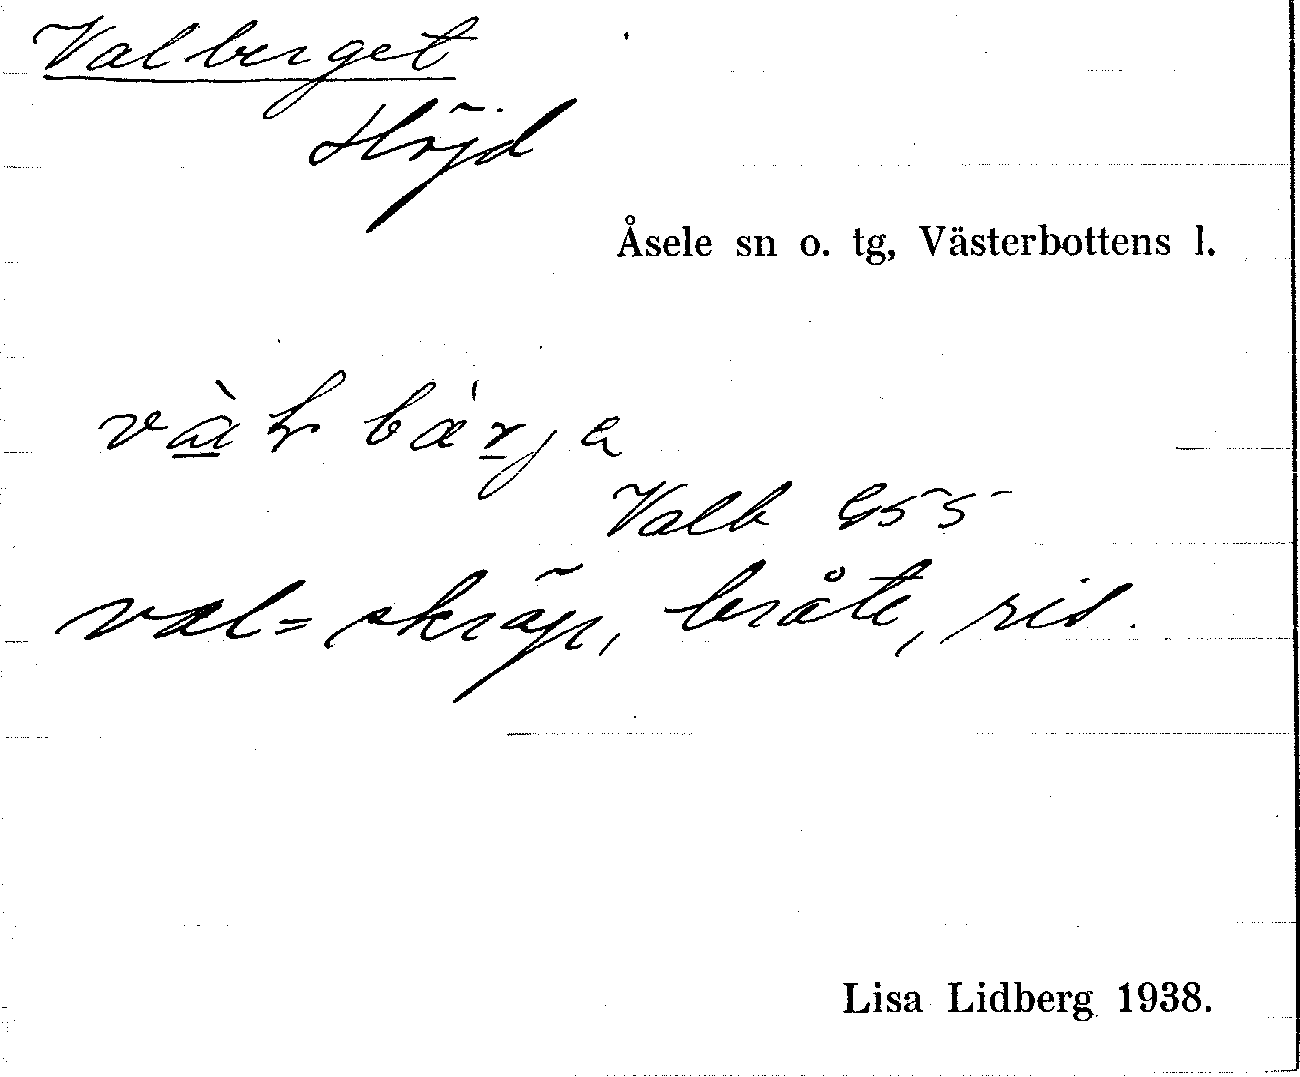 Valberget
Höjd
Åsele sn o. tg, Västerbottens l.
Valb G55
val = skräp, bråte, ris.
Lisa Lidberg 1938.